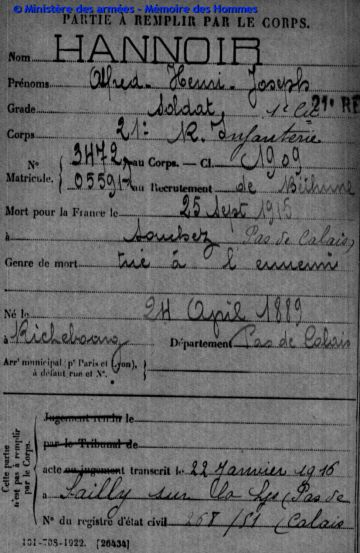 © Ministère des armées - Mémoire des Hommes
PARTIE À REMPLIR PAR LE CORPS.
Nom HANNOIR
Prénoms Alfred Henri Joseph
Grade Soldat 1e Cie 21e RE
Corps 21e R. Infanterie
N° 3472 au Corps. — Cl. 1909
Matricule. 05591 au Recrutement de Béthune
Mort pour la France le 25 Sept 1915
à Souchez Pas de Calais)
Genre de mort tué à l ennemi
Né le 24 April 1889
à Richebourg Département Pas de Calais
Arr' municipal (p' Paris et Lyon),
à défaut rue et N°.
Cette partie
n'est pas à remplir
par le Corps.
Jugement rendu le
par le Tribunal de
acte ou jugement transcrit le 22 Janvier 1916
à Sailly sur la Lys (Pas de
N° du registre d'état civil 267/51 Calais
131-708-1922. [26434]